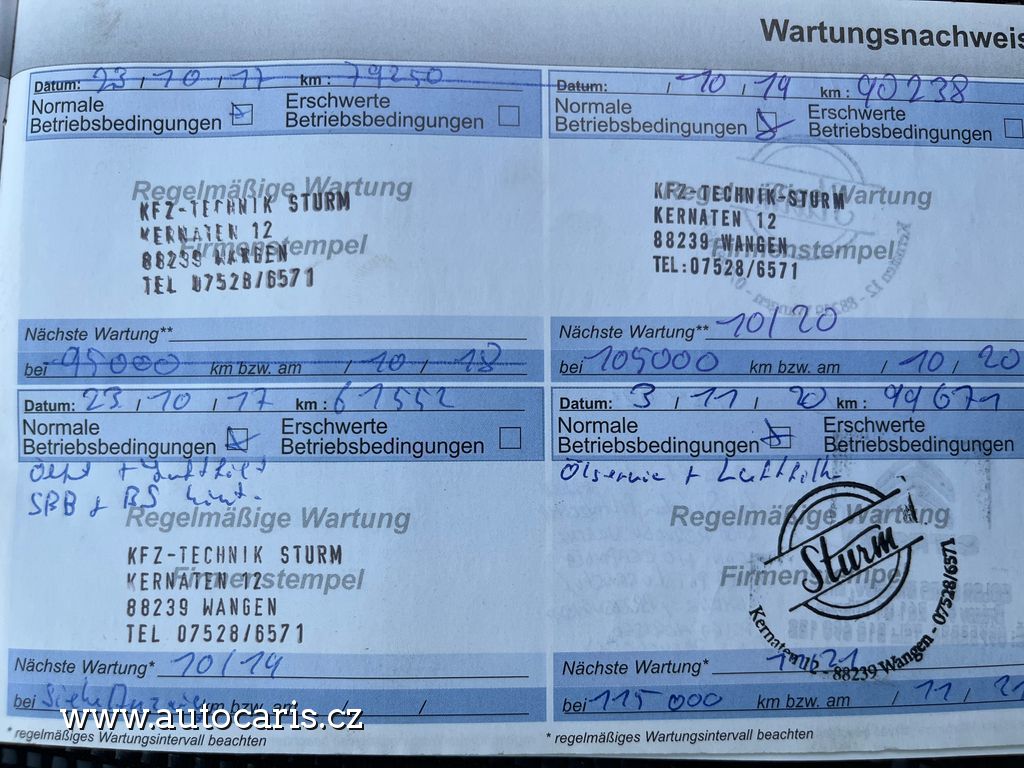 Wartungsnachweis
Datum: 23 / 10 / 17 km : 79250
Normale
Betriebsbedingungen
Erschwerte
Betriebsbedingungen
Regelmäßige Wartung
Firmenstempel
KFZ-TECHNIK STURM
KERNATEN 12
88239 WANGEN
TEL 07528/6571
Nächste Wartung**
bei 95000 km bzw. am / 10 / 18
Datum: / 10 / 19 km : 90238
Normale
Betriebsbedingungen
Erschwerte
Betriebsbedingungen
Regelmäßige Wartung
Firmenstempel
KFZ-TECHNIK-STURM
KERNATEN 12
88239 WANGEN
TEL:07528/6571
Nächste Wartung** 10/20
bei 105000 km bzw. am / 10 / 20
Datum: 23 / 10 / 17 km : 61552
Normale
Betriebsbedingungen
Erschwerte
Betriebsbedingungen
+
SBB + BS
Regelmäßige Wartung
Firmenstempel
KFZ-TECHNIK STURM
KERNATEN 12
88239 WANGEN
TEL 07528/6571
Nächste Wartung* 10/19
bei km bzw. am / /
* regelmäßiges Wartungsintervall beachten
Datum: 3 / 11 / 20 km : 99671
Normale
Betriebsbedingungen
Erschwerte
Betriebsbedingungen
Ölservice + Luftfilter
Regelmäßige Wartung
Firmenstempel
Sturm
Kernaten 12 - 88239 Wangen - 07528/6571
Nächste Wartung* 11/21
bei 115000 km bzw. am / 11 / 21
* regelmäßiges Wartungsintervall beachten
www.autocaris.cz